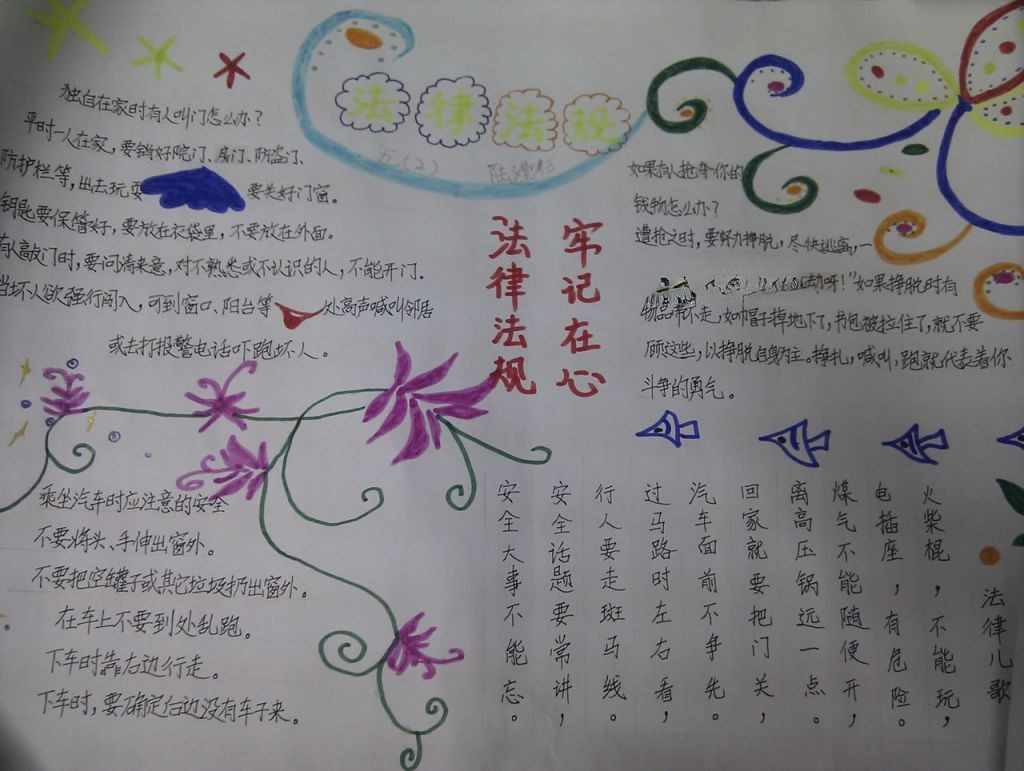 法律法规
五(2)
独自在家时有人叫门怎么办?
平时一人在家,要锁好院门、房门、防盗门、
防护栏等,出去玩耍 要关好门窗。
钥匙要保管好,要放在衣袋里,不要放在外面。
有人敲门时,要问清来意,对不熟悉或不认识的人,不能开门。
当坏人欲强行闯入,可到窗口、阳台等 处高声喊叫邻居
或去打报警电话吓跑坏人。
牢记在心
法律法规
如果有人抢夺你的
钱物怎么办?
遭抢之时,要努力挣脱,尽快逃离,一
劫呀!"如果挣脱时有
物品带不走,如帽子掉地下了,书包被拉住了,就不要
顾这些,以挣脱自身为主。挣扎,喊叫,跑就代表着你
斗争的勇气。
乘坐汽车时应注意的安全
不要将头、手伸出窗外。
不要把空罐子或其它垃圾扔出窗外。
在车上不要到处乱跑。
下车时靠右边行走。
下车时,要确定右边没有车子来。
法律儿歌
火柴棍,不能玩,
电插座,有危险。
煤气不能随便开,
离高压锅远一点。
回家就要把门关,
汽车面前不争先。
过马路时左右看,
行人要走斑马线。
安全话题要常讲,
安全大事不能忘。